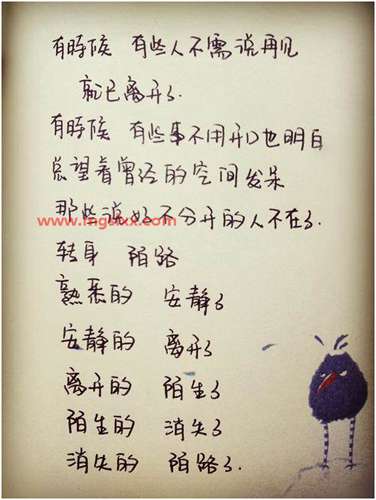 有時候 有些人不需说再见
就已离开了.
有時候 有些事不用开口也明白
总望着曾经的空间发呆
那些说好不分开的人不在了.
www.mgsxxx.com
转身 陌路
熟悉的 安静了
安静的 离开了
离开的 陌生了
陌生的 消失了
消失的 陌路了.